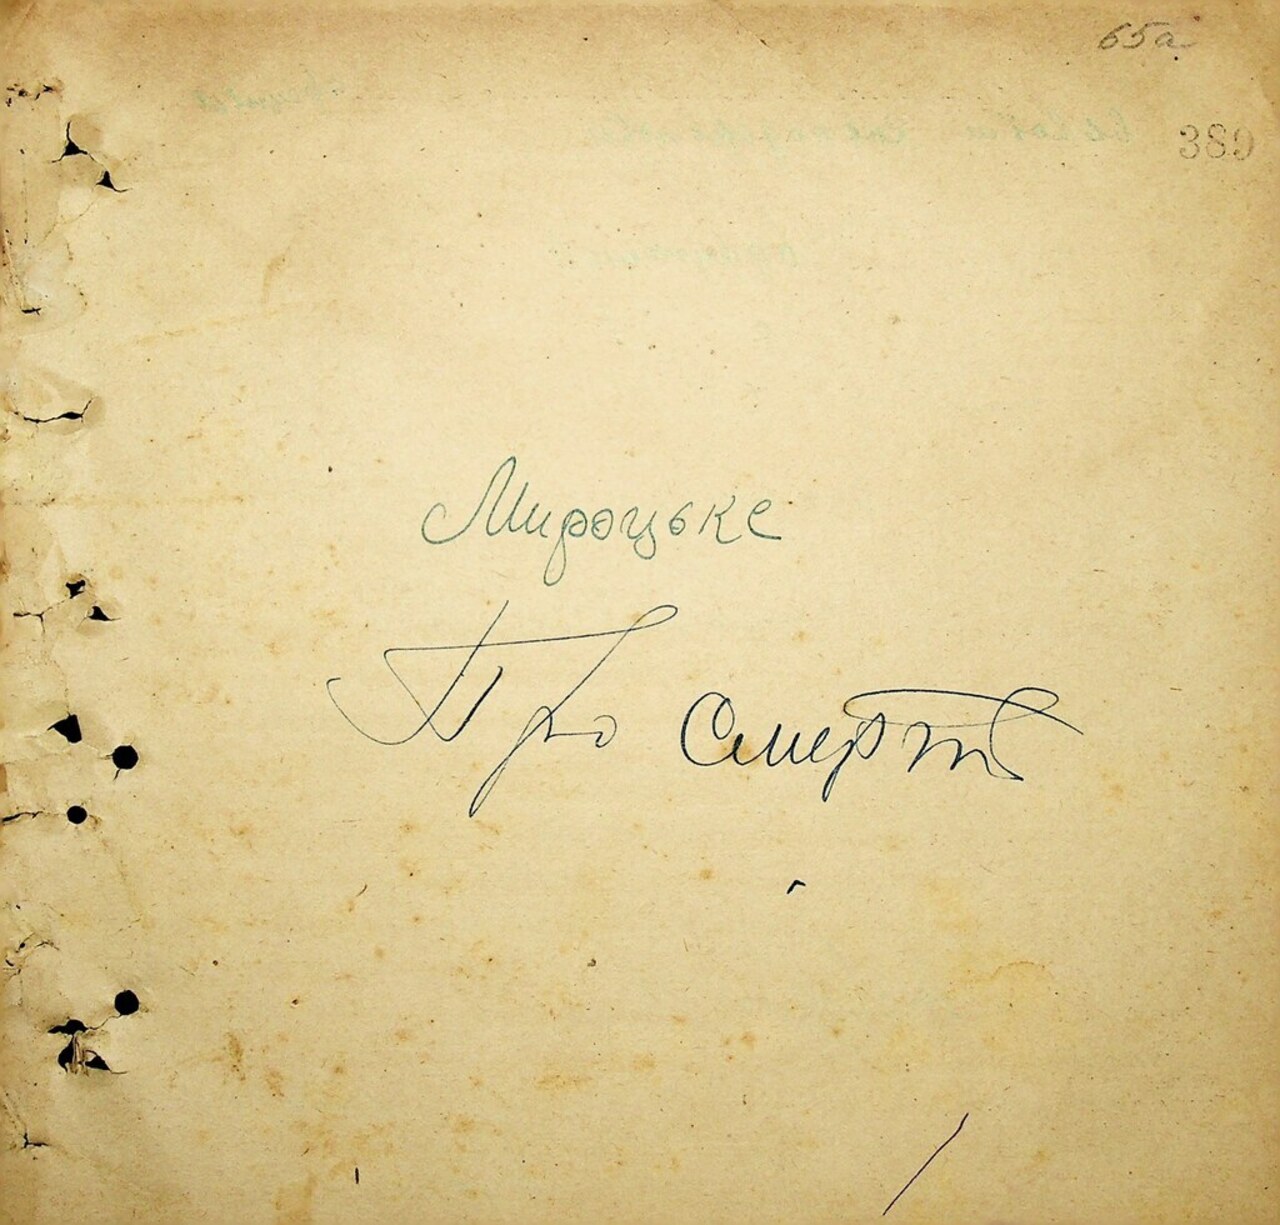 65а
389
Мироцьке
Про смерть